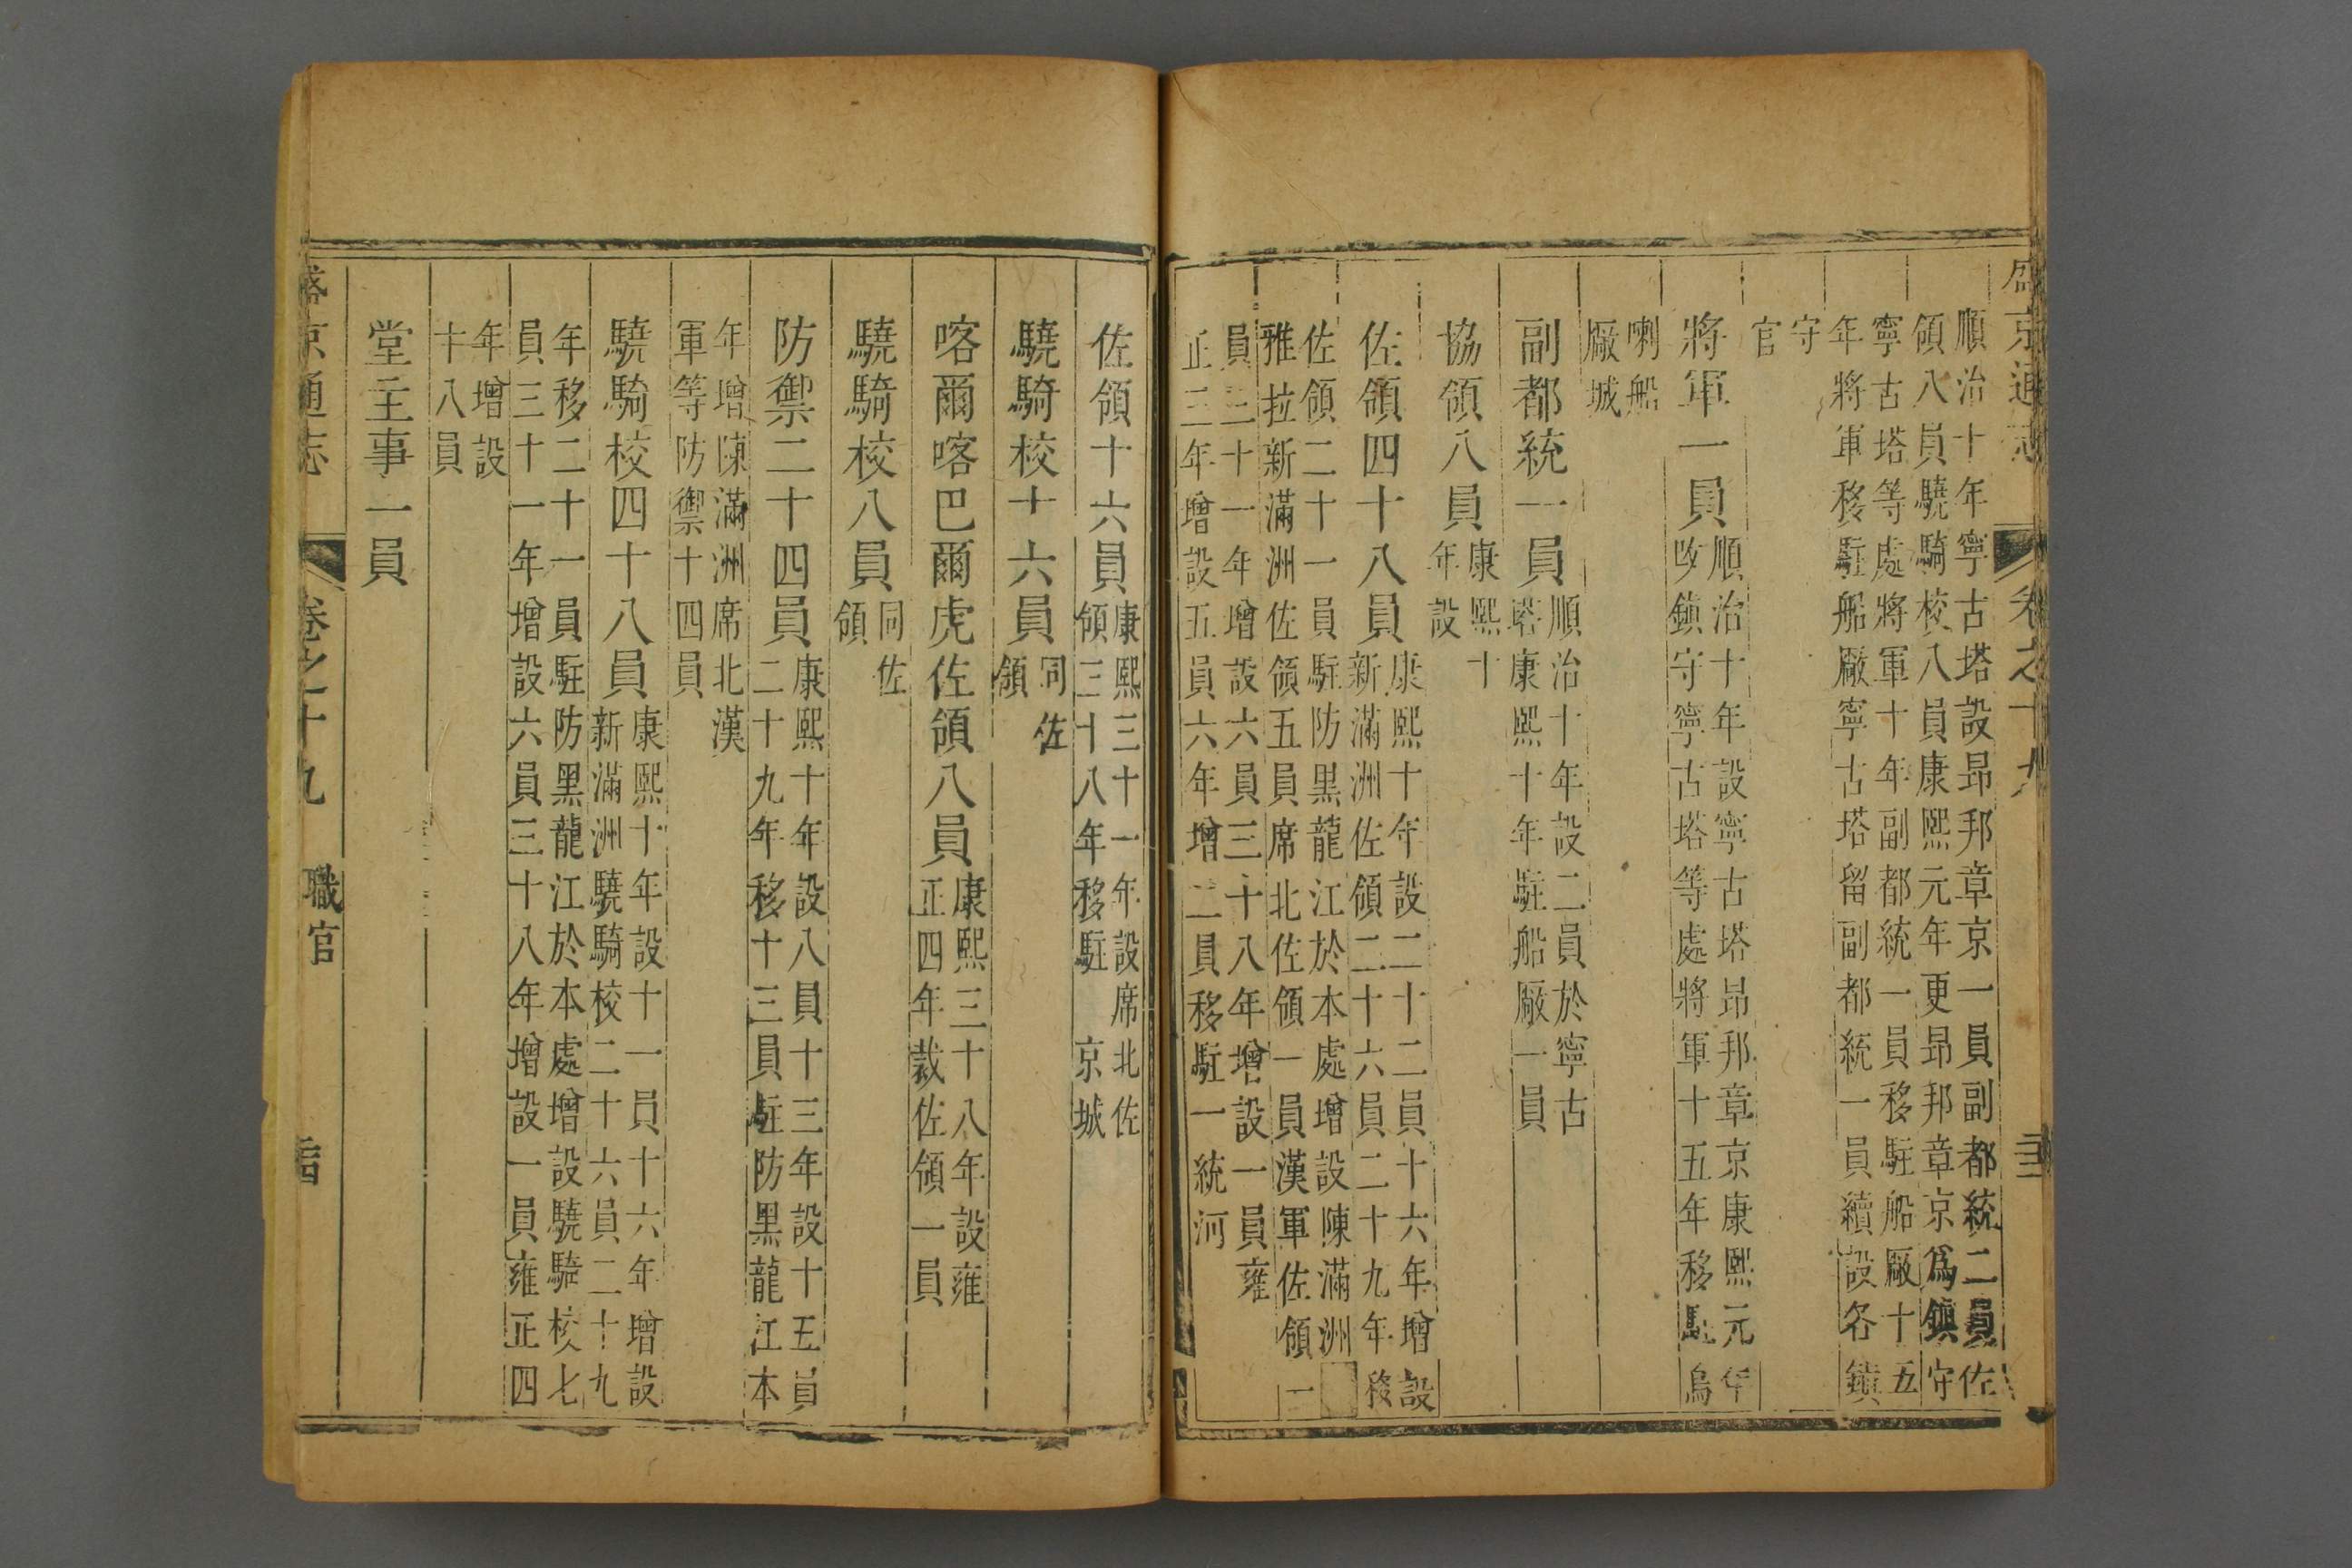 盛京通志 卷之十九
順治十年寧古塔設昂邦章京一員副都統二員佐
領八員驍騎校八員康熙元年更昂邦章京爲鎮守
寧古塔等處將軍十年副都統一員移駐船廠十五
年將軍移駐船廠寧古塔留副都統一員續設各鎮
守
官
將軍一員
順治十年設寧古塔昂邦章京康熙元年
改鎮守寧古塔等處將軍十五年移駐烏
喇船
廠城
副都統一員
順治十年設二員於寧古
塔康熙十年駐船廠一員
協領八員
康熙十
年設
佐領四十八員
康熙十年設二十二員十六年增設
新滿洲佐領二十六員二十九年移
佐領二十一員駐防黑龍江於本處增設陳滿洲
雅拉新滿洲佐領五員席北佐領一員漢軍佐領二
員三十一年增設六員三十八年增設一員雍
正三年增設五員六年增二員移駐一統河
佐領十六員
康熙三十一年設席北佐
領三十八年移駐 京城
驍騎校十六員
同佐
領
喀爾喀巴爾虎佐領八員
康熙三十八年設雍
正四年裁佐領一員
驍騎校八員
同佐
領
防禦二十四員
康熙十年設八員十三年設十五員
二十九年移十三員駐防黑龍江本
年增陳滿洲席北漢
軍等防禦十四員
驍騎校四十八員
康熙十年設十一員十六年增設
新滿洲驍騎校二十六員二十九
年移二十一員駐防黑龍江於本處增設驍騎校七
員三十一年增設六員三十八年增設一員雍正四
年增設
十八員
堂主事一員
盛京通志 卷之十九 職官